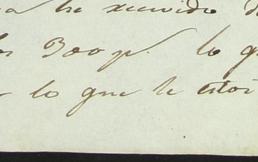 ha recivido
300 p. lo q
lo que te estoi